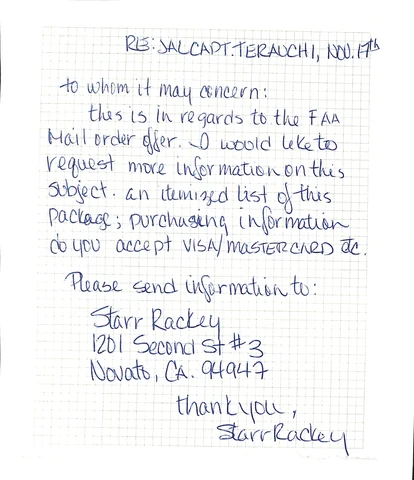 RE: JAL CAPT. TERAUCHI, NOV. 17th
to whom it may concern:
this is in regards to the FAA
Mail order offer. I would like to
request more information on this
subject. an itemized list of this
package; purchasing information
do you accept VISA/MASTERCARD etc.
Please send information to:
Starr Rackey
1201 Second St #3
Novato, CA. 94947
thank you,
Starr Rackey